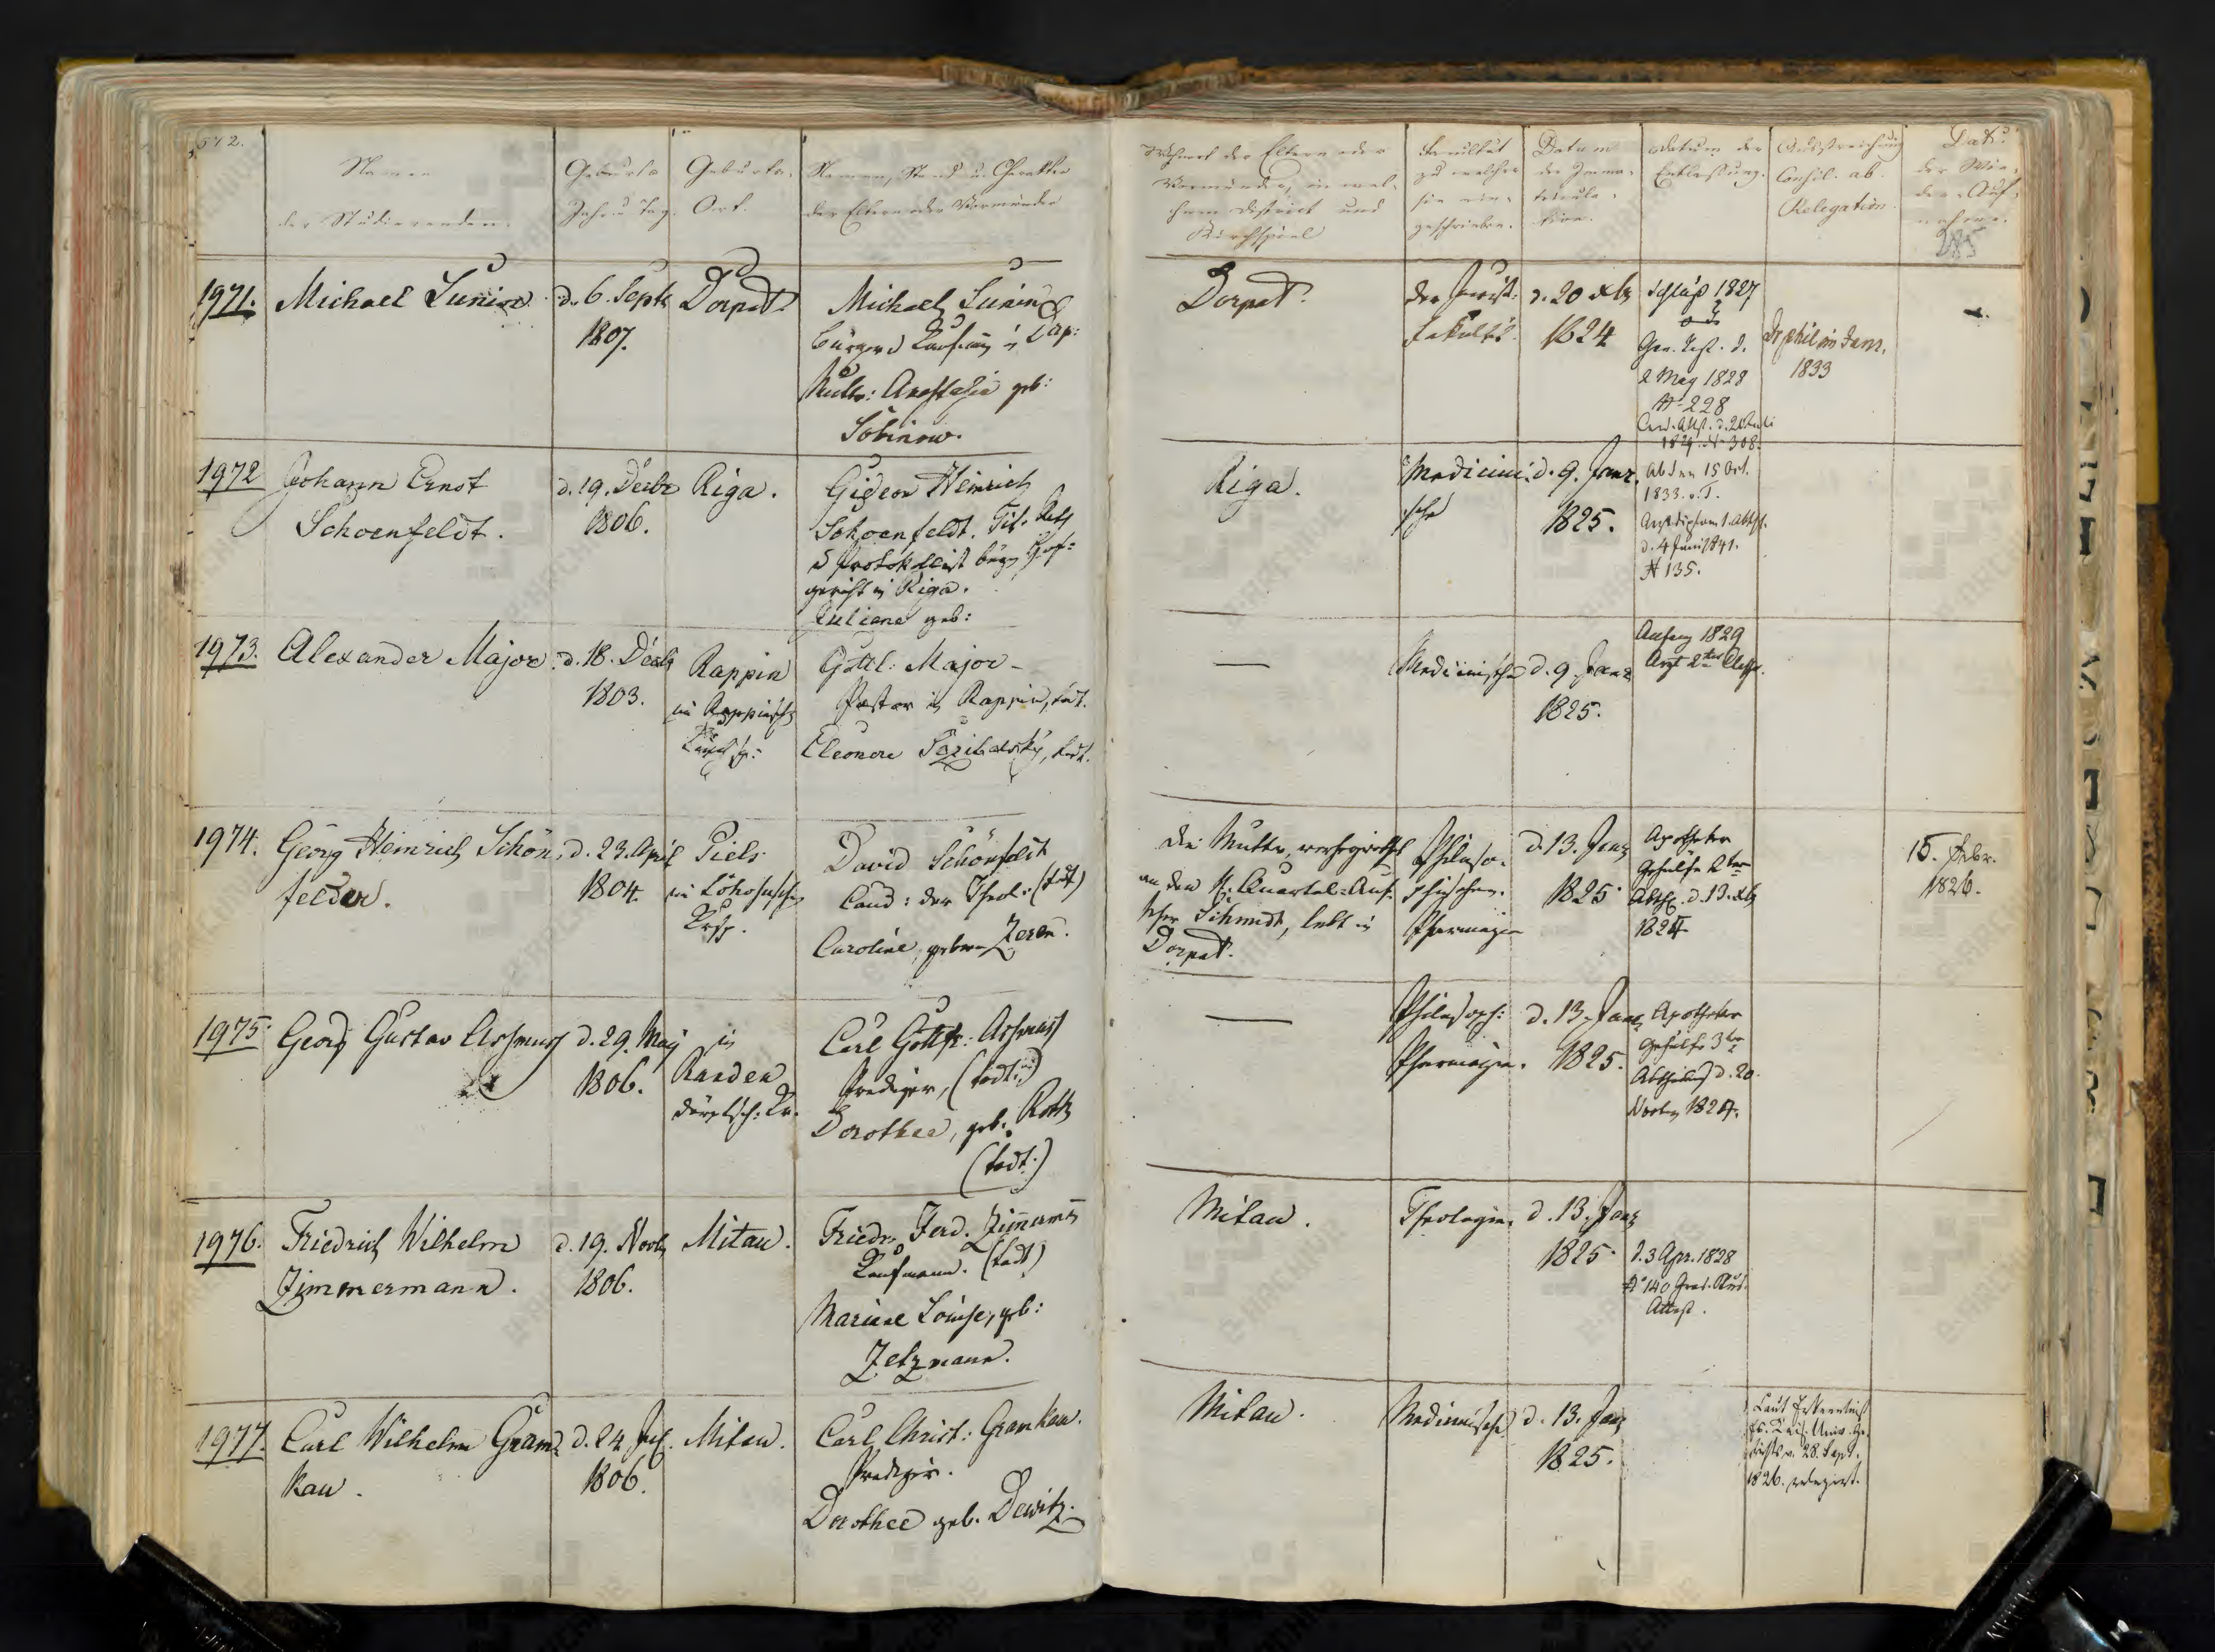 Namen
der Studierenden.
Geburts
Jahr u Tag.
Geburts-
Ort.
Namen, Stand u. Charakter
der Eltern oder Vormünder
Wohnort der Eltern oder
Vormünder, in wel-
chem District und
Kirchspiel
Facultät
zu welcher
sie ein-
geschrieben.
Datum
der Imma-
tricula-
tion.
Datum der
Entlassung.
Ausstreichung
Consil. ab.
Relegation.
Dat.
der Wie-
der-Auf-
nahme.
285
1971. Michael Lunin d. 6. Septb Dorpat.
1807.
Michael Lunin
Bürger u Kaufmann
Mutter: Anastasia geb:
Sobinow.
Dorpat.
der Jurist.
Fakultät.
d. 20 Xb
1824
Schluß 1827
2 May 1828
N 228
1829. N 308.
Dr phil im Janr.
1833
1972 Johann Ernst
Schoenfeldt.
d. 19. Decbr
1806.
Riga.
Gideon Heinrich
Schoenfeldt. Tit. Rath
u Protokollist
gericht in Riga.
Juliane geb:
Riga.
Medicini-
sche
d. 9. Janr.
1825.
15 Oct.
1833.
d. 4 Juni 1841.
N 135.
1973. Alexander Major. d. 18. Decb
1803.
Rappin
im Rappinsch
Kirchsp:
Gottl: Major
Pastor in Rappin, todt.
Eleonore
todt.
Medicinische
d. 9. Janr
1825.
Anfang 1829
Arzt 2ter Classe.
1974. Georg Heinrich Schön-
felder.
d. 23. April
1804.
Piels
im
Krsp.
David Schönfeldt
Cand: der Theol: (todt)
Caroline, geborne
Die Mutter, verheirathet
an den Quartal-Auf-
seher Schmidt, lebt in
Dorpat.
Philoso-
phischen.
Pharmazie
d. 13. Janr
1825
Apotheker
Gehülfe 2ter
Abth. d. 13. Xb
1824
15. Febr.
1826.
1975. Georg Gustav Assmuss d. 29. May
1806.
in
Randen
dörptsch: Kr.
Carl Gottfr: Assmuss
Prediger, (todt:)
Dorothea, geb. Roth
(todt:)
Philosoph:
Pharmazie.
d. 13. Janr
1825.
Apotheker
Gehülfe 3ter
Abtheilung d. 20
Novbr 1824.
1976. Friedrich Wilhelm
Zimmermann.
d. 19. Novb
1806.
Mitau.
Friedr. Ferd. Zimmerm̄
Kaufmann. (todt)
Mariane Louise, geb:
Zetzmann.
Mitau.
Theologie.
d. 13. Janr
1825.
d. 3 Apr. 1828
N 140 Grad. Stud.
Attest.
1977. Carl Wilhelm Gram-
kau.
d. 24. Jul.
1806.
Mitau.
Carl Christ: Gramkau.
Prediger.
Dorothee geb. Dewitz.
Mitau.
Medicinische
d. 13. Janr
1825.
Laut Erkenntniß
Kais. Univ. Ge-
richts v. 28. Sept.
1826. relegirt.